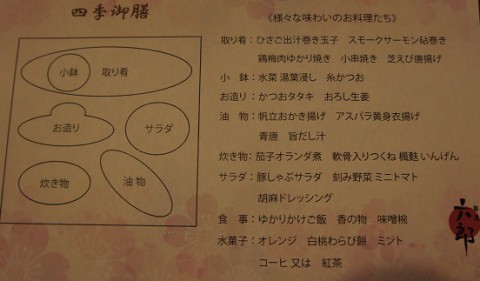 四季御膳
小鉢 取り肴
お造り サラダ
炊き物 油物
《様々な味わいのお料理たち》
取り肴：ひさご出汁巻き玉子 スモークサーモン砧巻き
鶏梅肉ゆかり焼き 小串焼き 芝えび唐揚げ
小 鉢：水菜 湯葉浸し 糸かつお
お造り：かつおタタキ おろし生姜
油 物：帆立おかき揚げ アスパラ黄身衣揚げ
青唐 旨だし汁
炊き物：茄子オランダ煮 軟骨入りつくね 楓麩 いんげん
サラダ：豚しゃぶサラダ 刻み野菜 ミニトマト
胡麻ドレッシング
食 事：ゆかりかけご飯 香の物 味噌椀
水菓子：オレンジ 白桃わらび餅 ミント
コーヒ 又は 紅茶
六郎